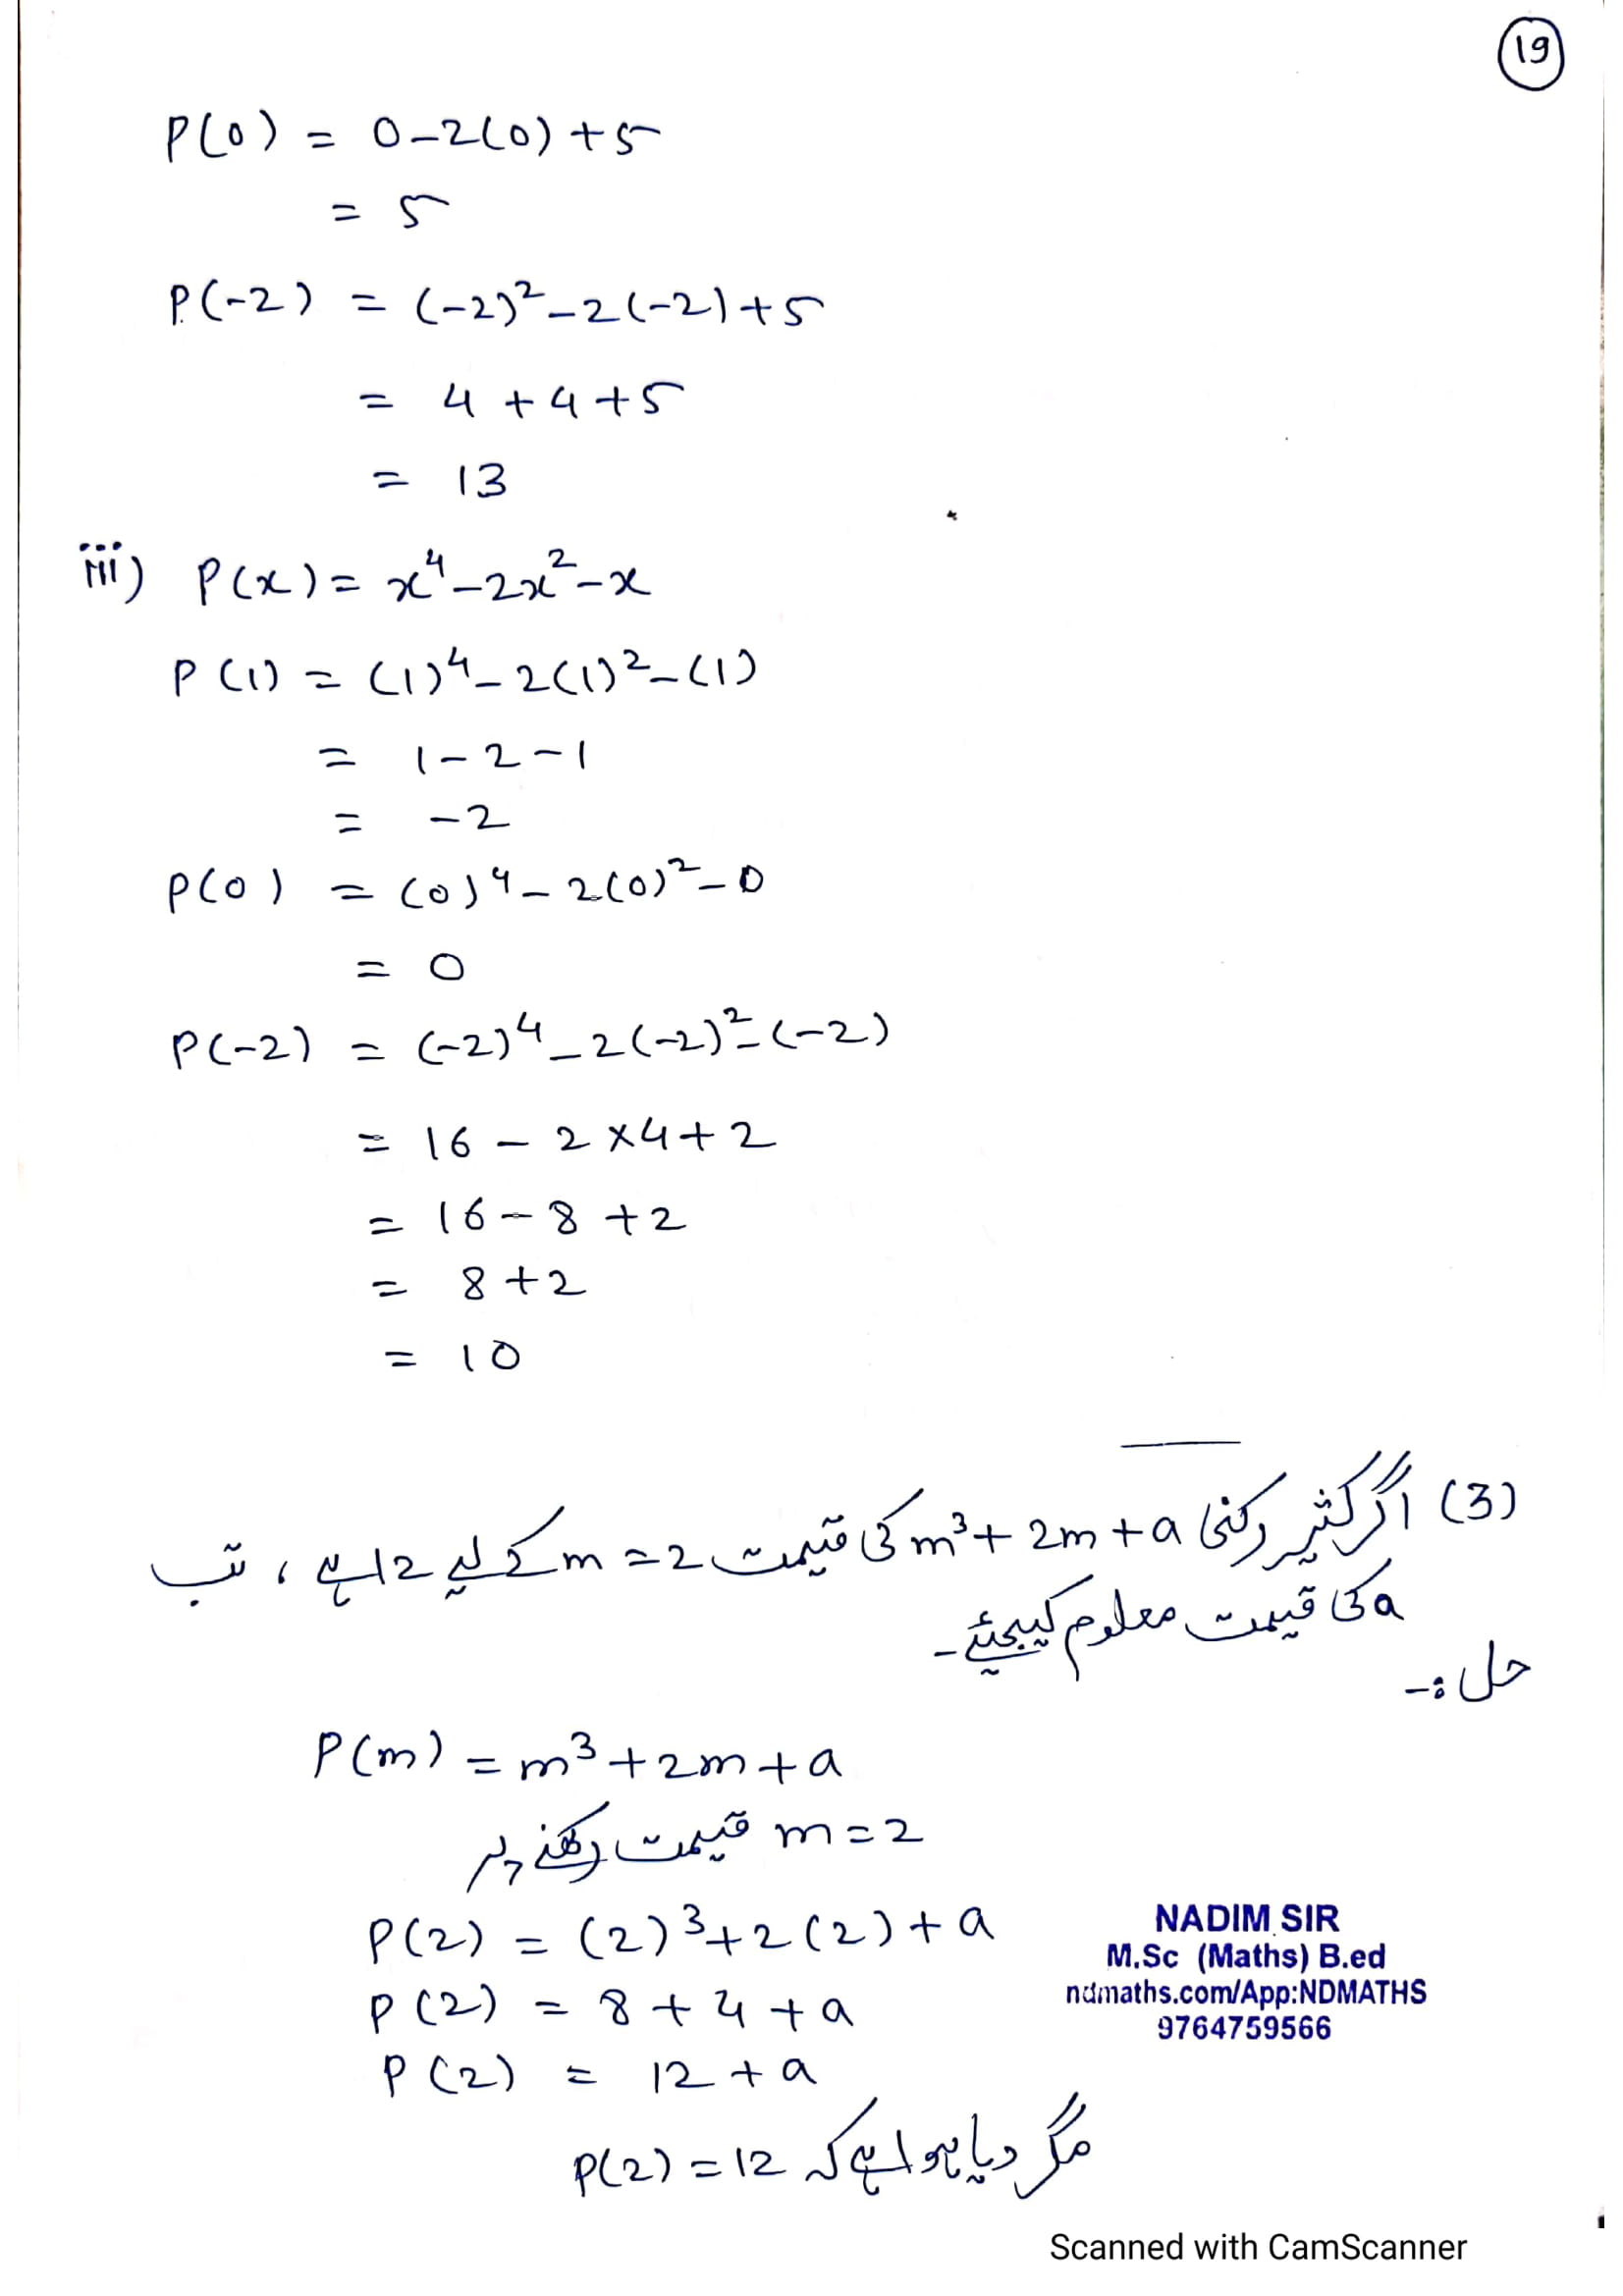 19
P(0) = 0-2(0)+5
= 5
P(-2) = (-2)²-2(-2)+5
= 4+4+5
= 13
iii) P(x) = x⁴-2x²-x
P(1) = (1)⁴-2(1)²-(1)
= 1-2-1
= -2
P(0) = (0)⁴-2(0)²-0
= 0
P(-2) = (-2)⁴-2(-2)²-(-2)
= 16-2×4+2
= 16-8+2
= 8+2
= 10
(3) اگر کثیر رکنی m³+2m+a کی قیمت m=2 کے لیے 12 ہے، تب
a کی قیمت معلوم کیجیئے۔
حل :-
P(m) = m³+2m+a
m=2 قیمت رکھنے پر
P(2) = (2)³+2(2)+a
P(2) = 8+4+a
P(2) = 12+a
مگر دیا ہوا ہے کہ P(2)=12
NADIM SIR
M.Sc (Maths) B.ed
ndmaths.com/App:NDMATHS
9764759566
Scanned with CamScanner